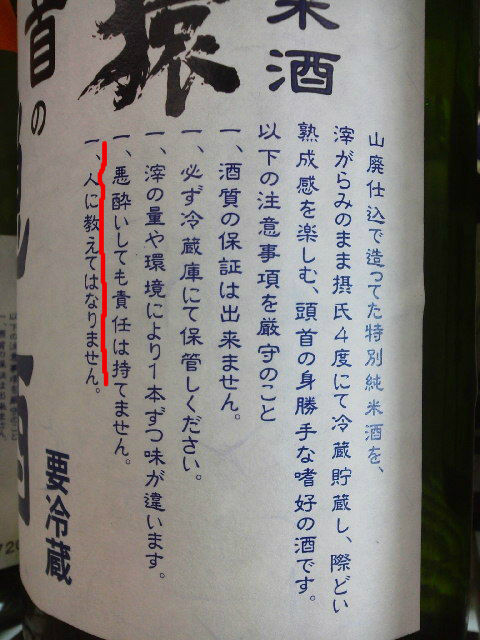 米酒
山廃仕込で造ってた特別純米酒を、
滓がらみのまま摂氏4度にて冷蔵貯蔵し、際どい
熟成感を楽しむ、頭首の身勝手な嗜好の酒です。
以下の注意事項を厳守のこと
一、酒質の保証は出来ません。
一、必ず冷蔵庫にて保管しください。
一、滓の量や環境により1本ずつ味が違います。
一、悪酔いしても責任は持てません。
一、人に教えてはなりません。
猿
首の
要冷蔵